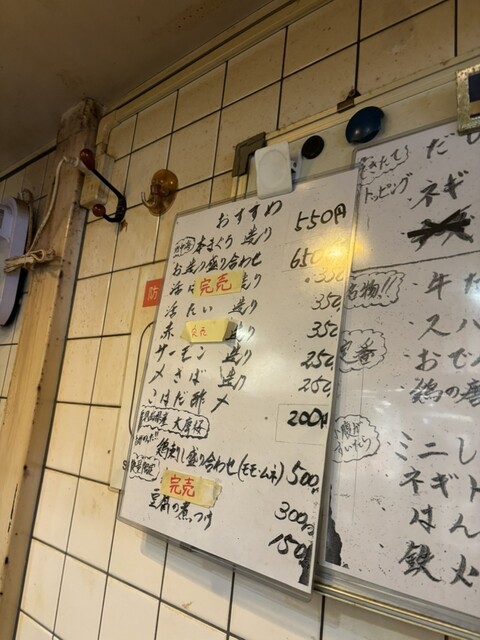 おすすめ
本まぐろ 造り 550円
お造り盛り合わせ 650
活 完売 造り 350
活たい 造り 350
赤 完売 造り 350
サーモン 造り 250
〆さば 造り 250
こはだ酢〆 200円
鶏刺し盛り合わせ(モモ・ムネ) 500円
完売 300円
豆腐の煮つけ 150円
防
トッピング
ネギ
名物!!
牛
定番
おでん
鶏の唐
ミニし
ネギト
はん
鉄火